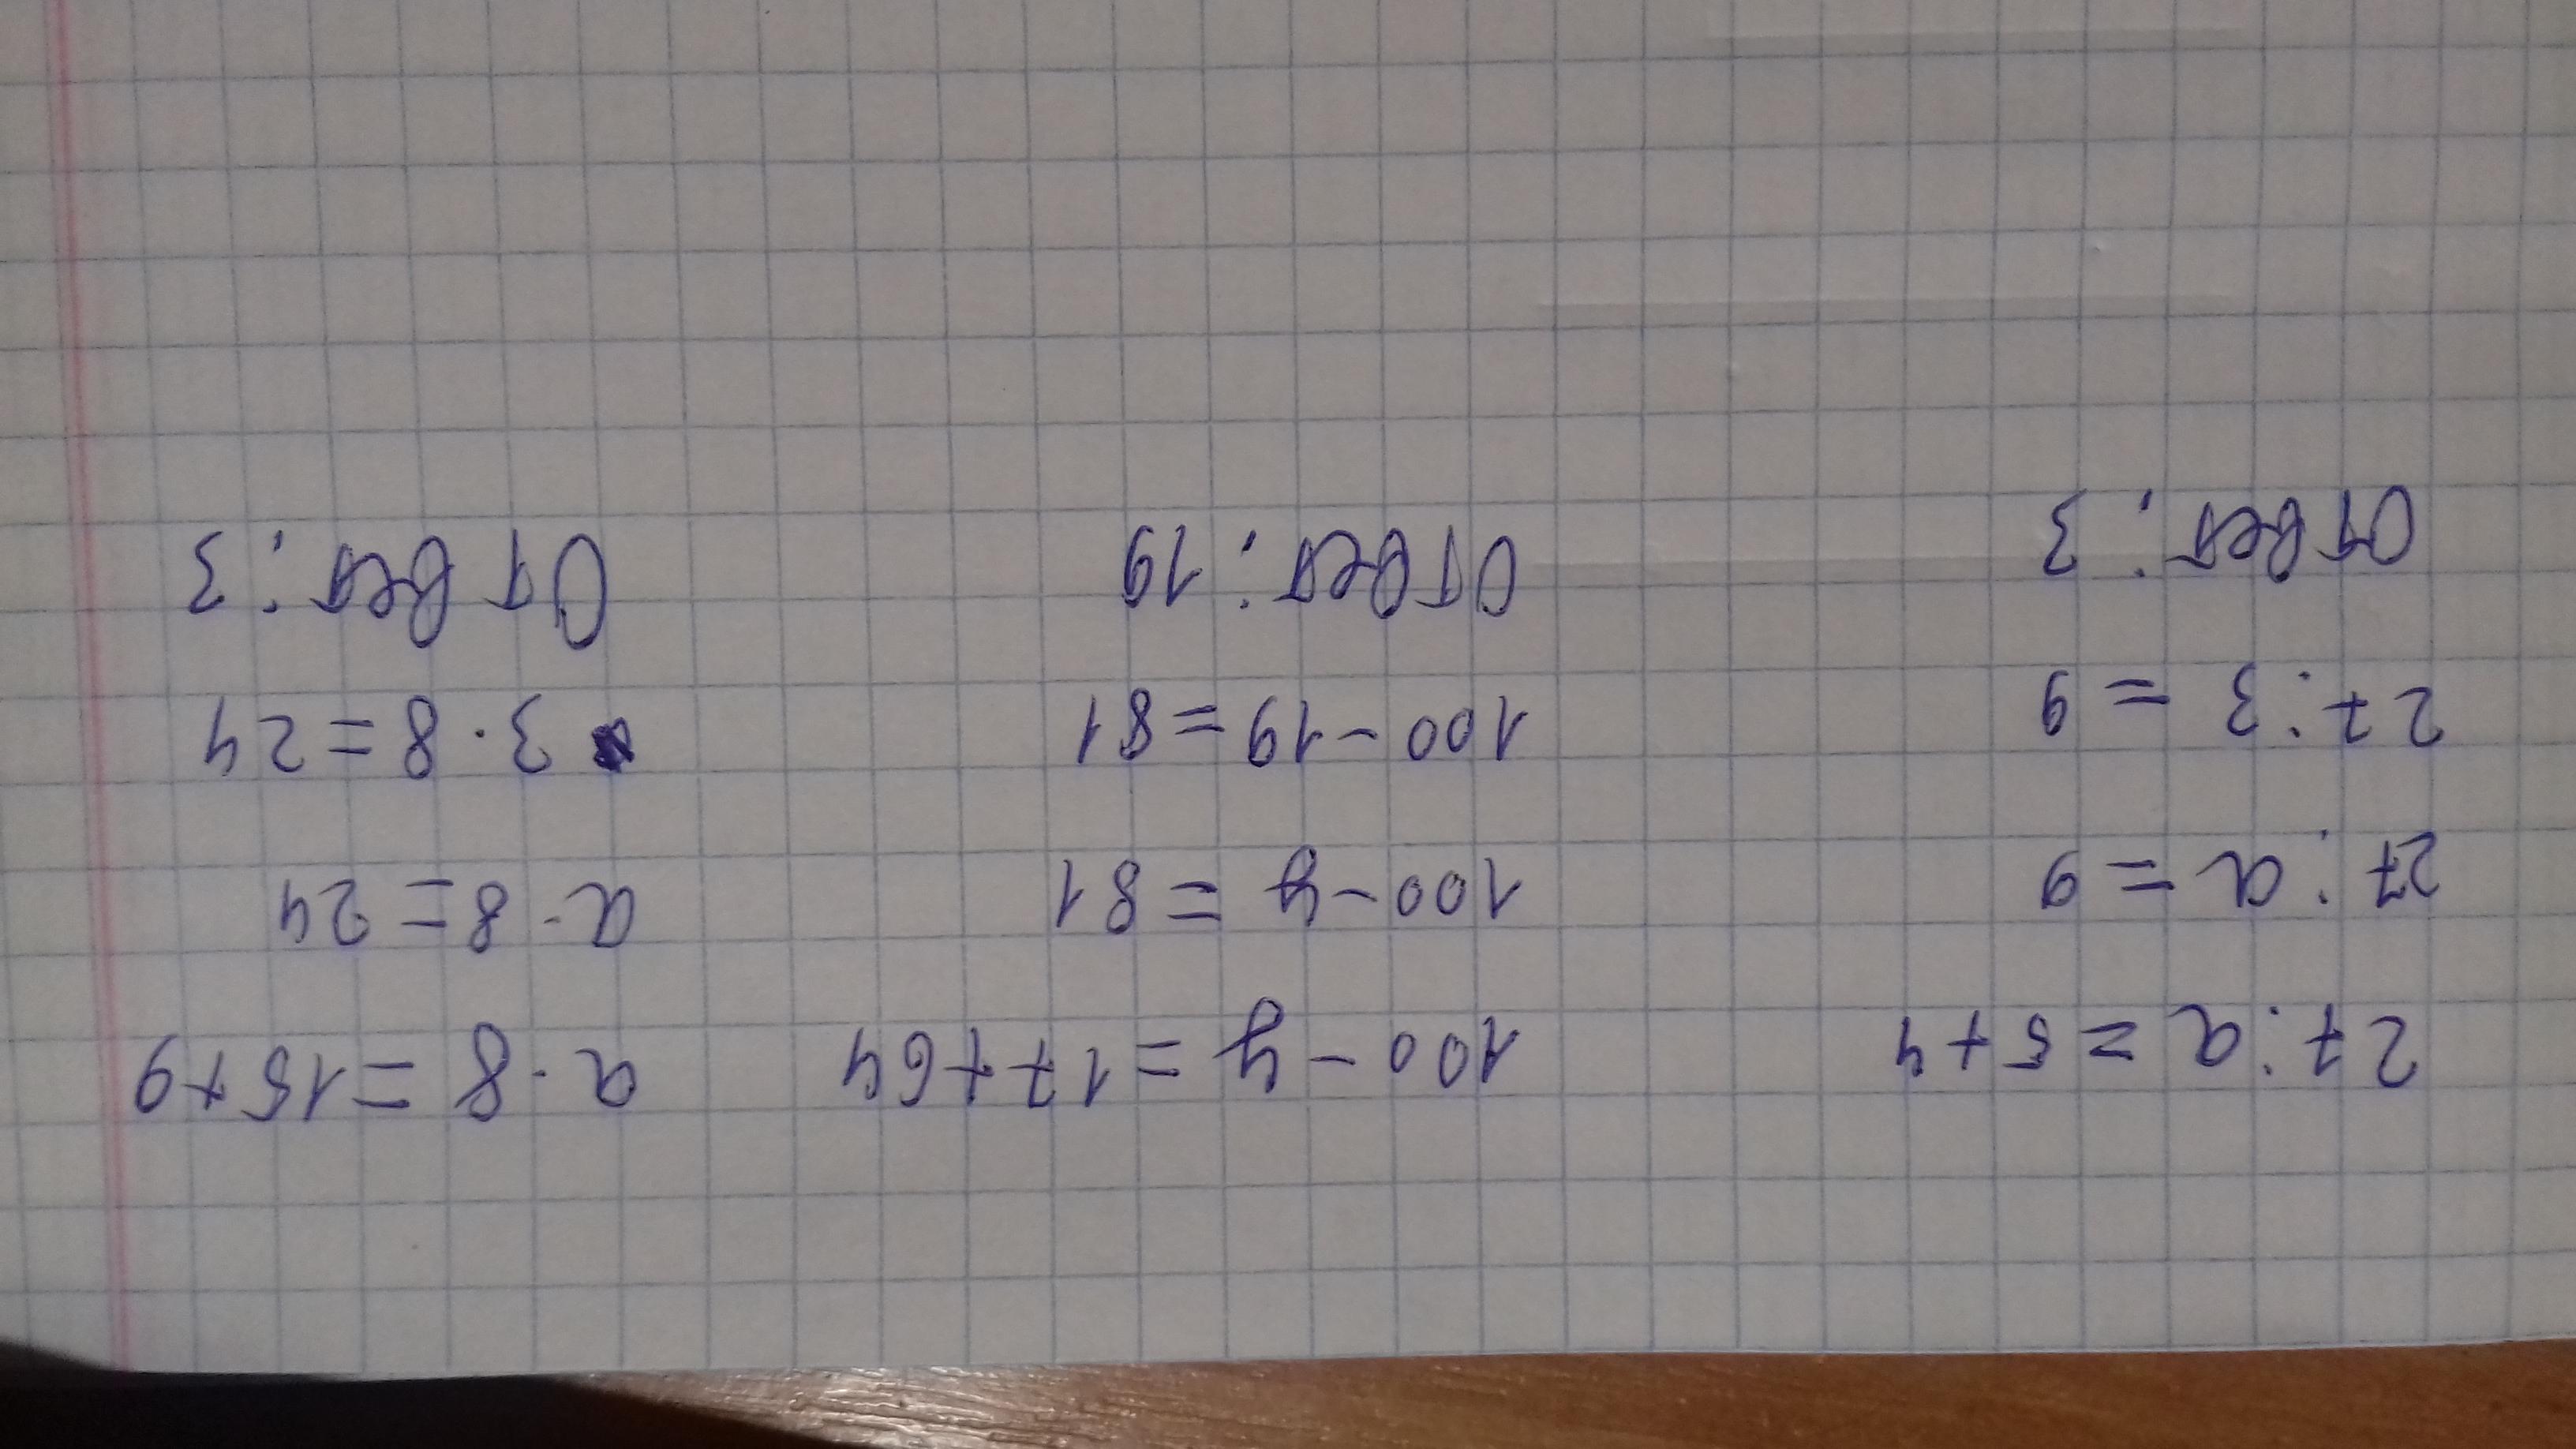 27 : a = 5 + 4
27 : a = 9
27 : 3 = 9
Ответ : 3
100 - y = 17 + 64
100 - y = 81
100 - 19 = 81
Ответ : 19
a · 8 = 15 + 9
a · 8 = 24
3 · 8 = 24
Ответ : 3